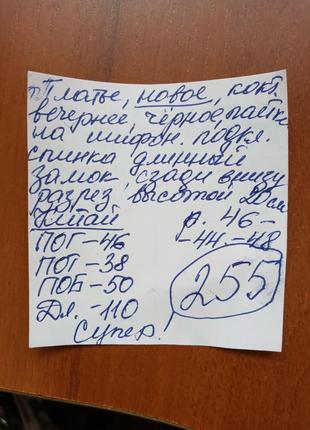 Платье, новое, кокт.
вечернее, чёрное, пайтк
на шифон. подкл.
спинка длинный
замок, сзади внизу
разрез высотой 20 см
Китай
р. 46-
ПОГ-46
44-48
ПОТ-38
ПОБ-50
255
Дл.-110
Супер.